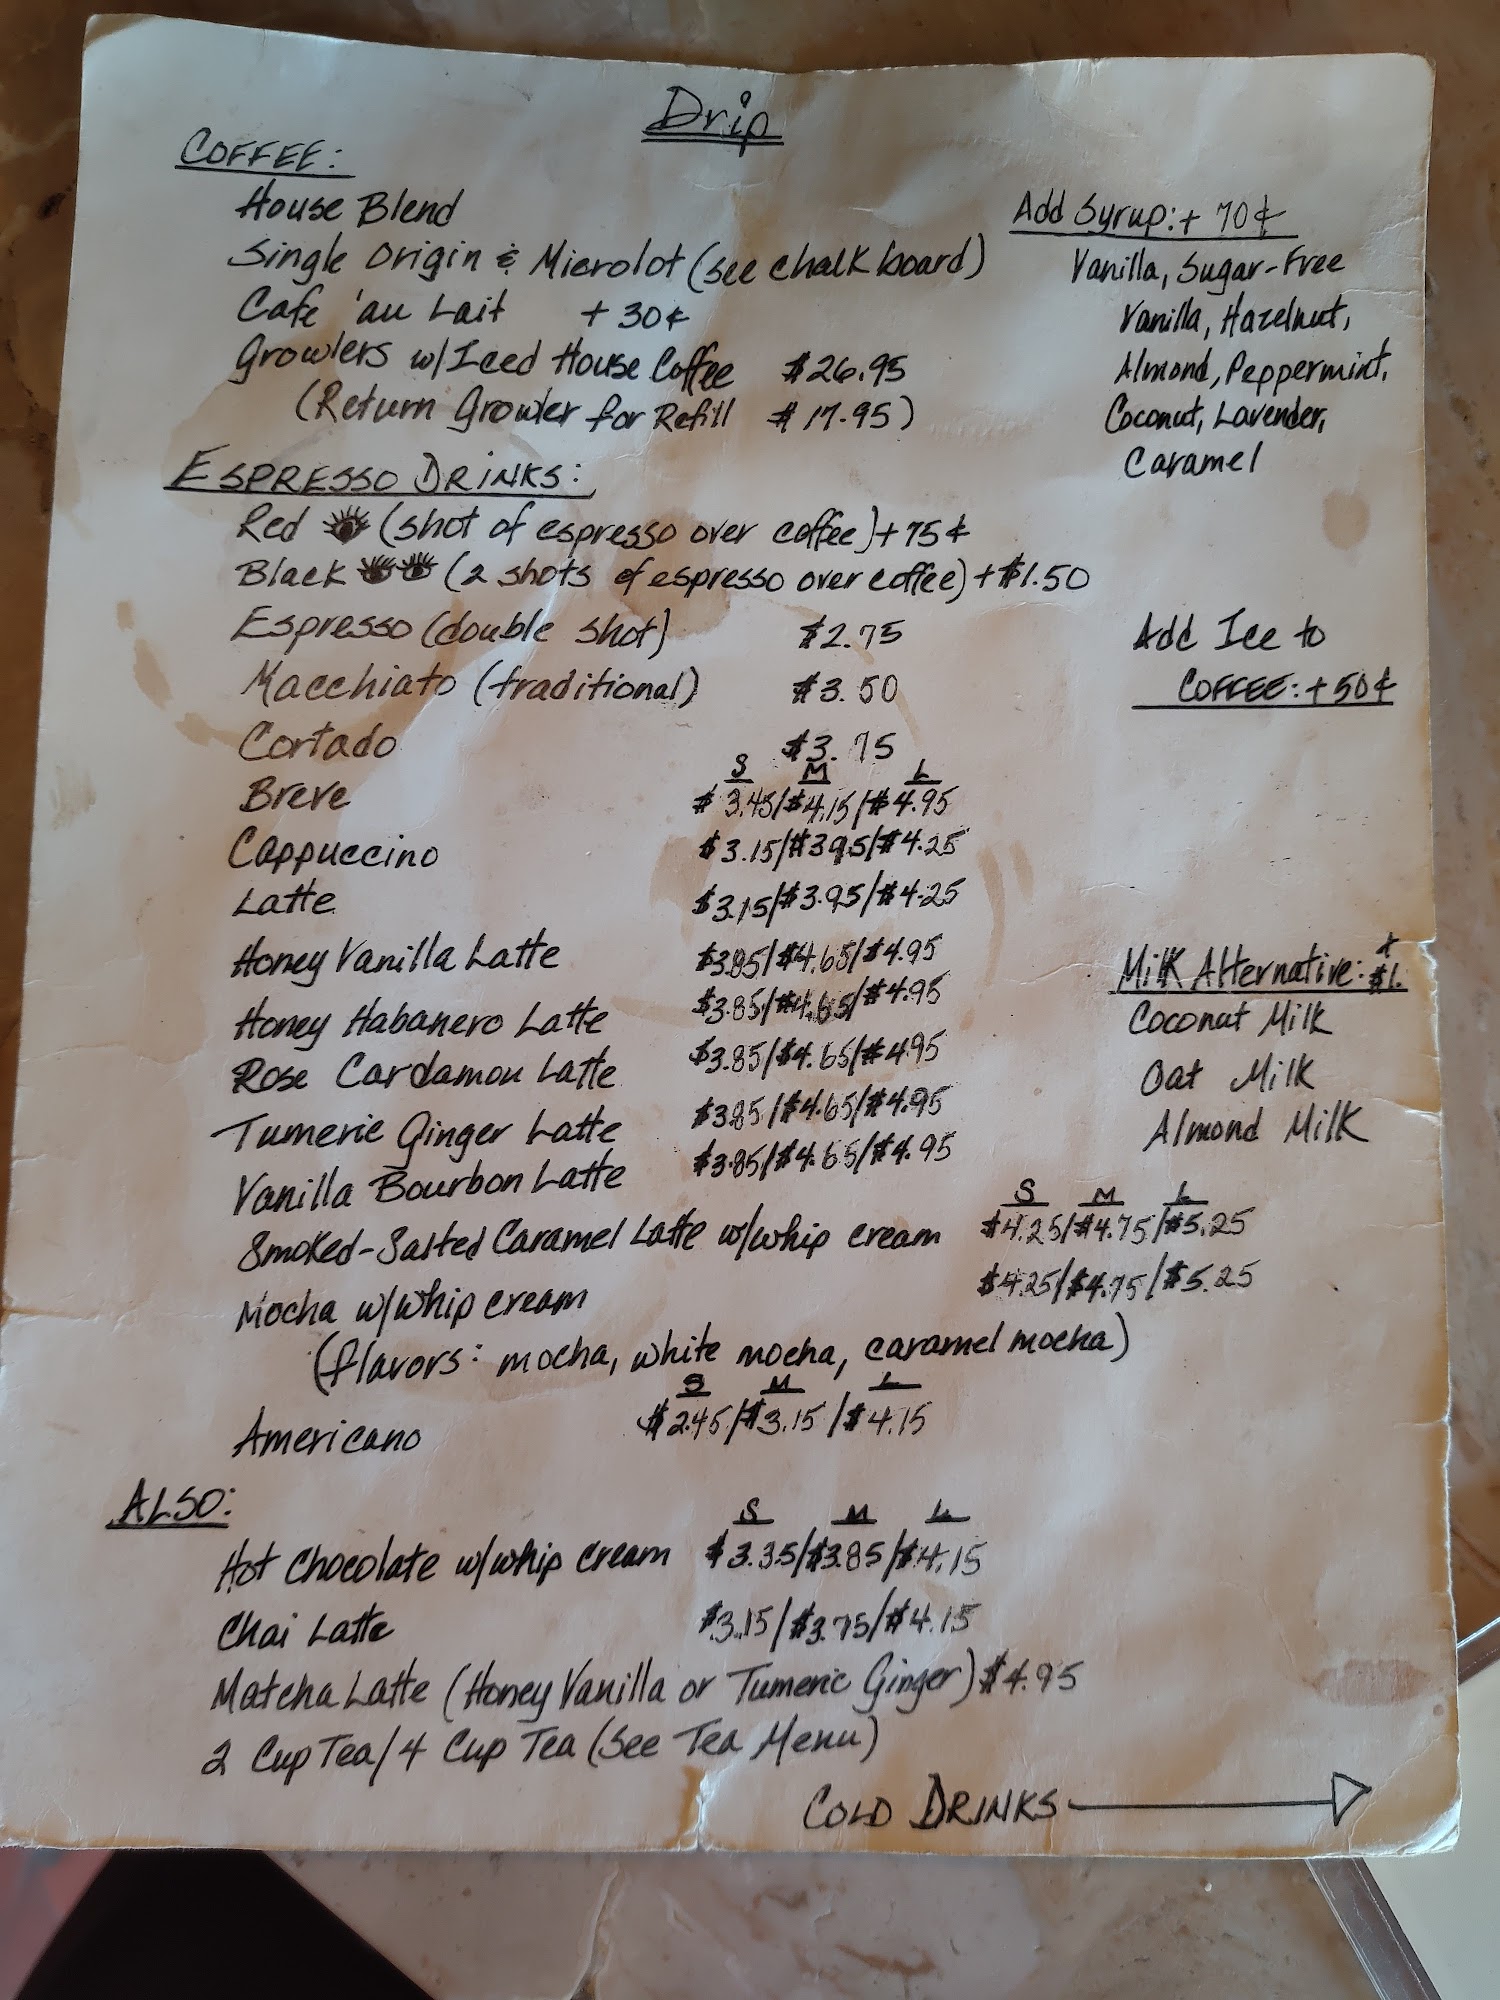 Drip
COFFEE:
House Blend
Single Origin & Microlot (see chalk board)
Cafe 'au Lait + 30¢
Growlers w/Iced House Coffee $26.95
(Return Growler for Refill $17.95)
Add Syrup: + 70¢
Vanilla, Sugar-Free
Vanilla, Hazelnut,
Almond, Peppermint,
Coconut, Lavender,
Caramel
ESPRESSO DRINKS:
Red (shot of espresso over coffee) + 75¢
Black (2 shots of espresso over coffee) + $1.50
Espresso (double shot) $2.75
Macchiato (traditional) $3.50
Cortado $3.75
S M L
Breve $3.45/$4.15/$4.95
Cappuccino $3.15/$3.95/$4.25
Latte $3.15/$3.95/$4.25
Honey Vanilla Latte $3.85/$4.65/$4.95
Honey Habanero Latte $3.85/$4.65/$4.95
Rose Cardamon Latte $3.85/$4.65/$4.95
Tumeric Ginger Latte $3.85/$4.65/$4.95
Vanilla Bourbon Latte $3.85/$4.65/$4.95
S M L
Smoked-Salted Caramel Latte w/whip cream $4.25/$4.75/$5.25
Mocha w/whip cream $4.25/$4.75/$5.25
(flavors: mocha, white mocha, caramel mocha)
S M L
Americano $2.45/$3.15/$4.15
Add Ice to
COFFEE: + 50¢
Milk Alternative: + $1.
Coconut Milk
Oat Milk
Almond Milk
ALSO:
S M L
Hot Chocolate w/whip cream $3.35/$3.85/$4.15
Chai Latte $3.15/$3.75/$4.15
Matcha Latte (Honey Vanilla or Tumeric Ginger) $4.95
2 Cup Tea/4 Cup Tea (See Tea Menu)
COLD DRINKS